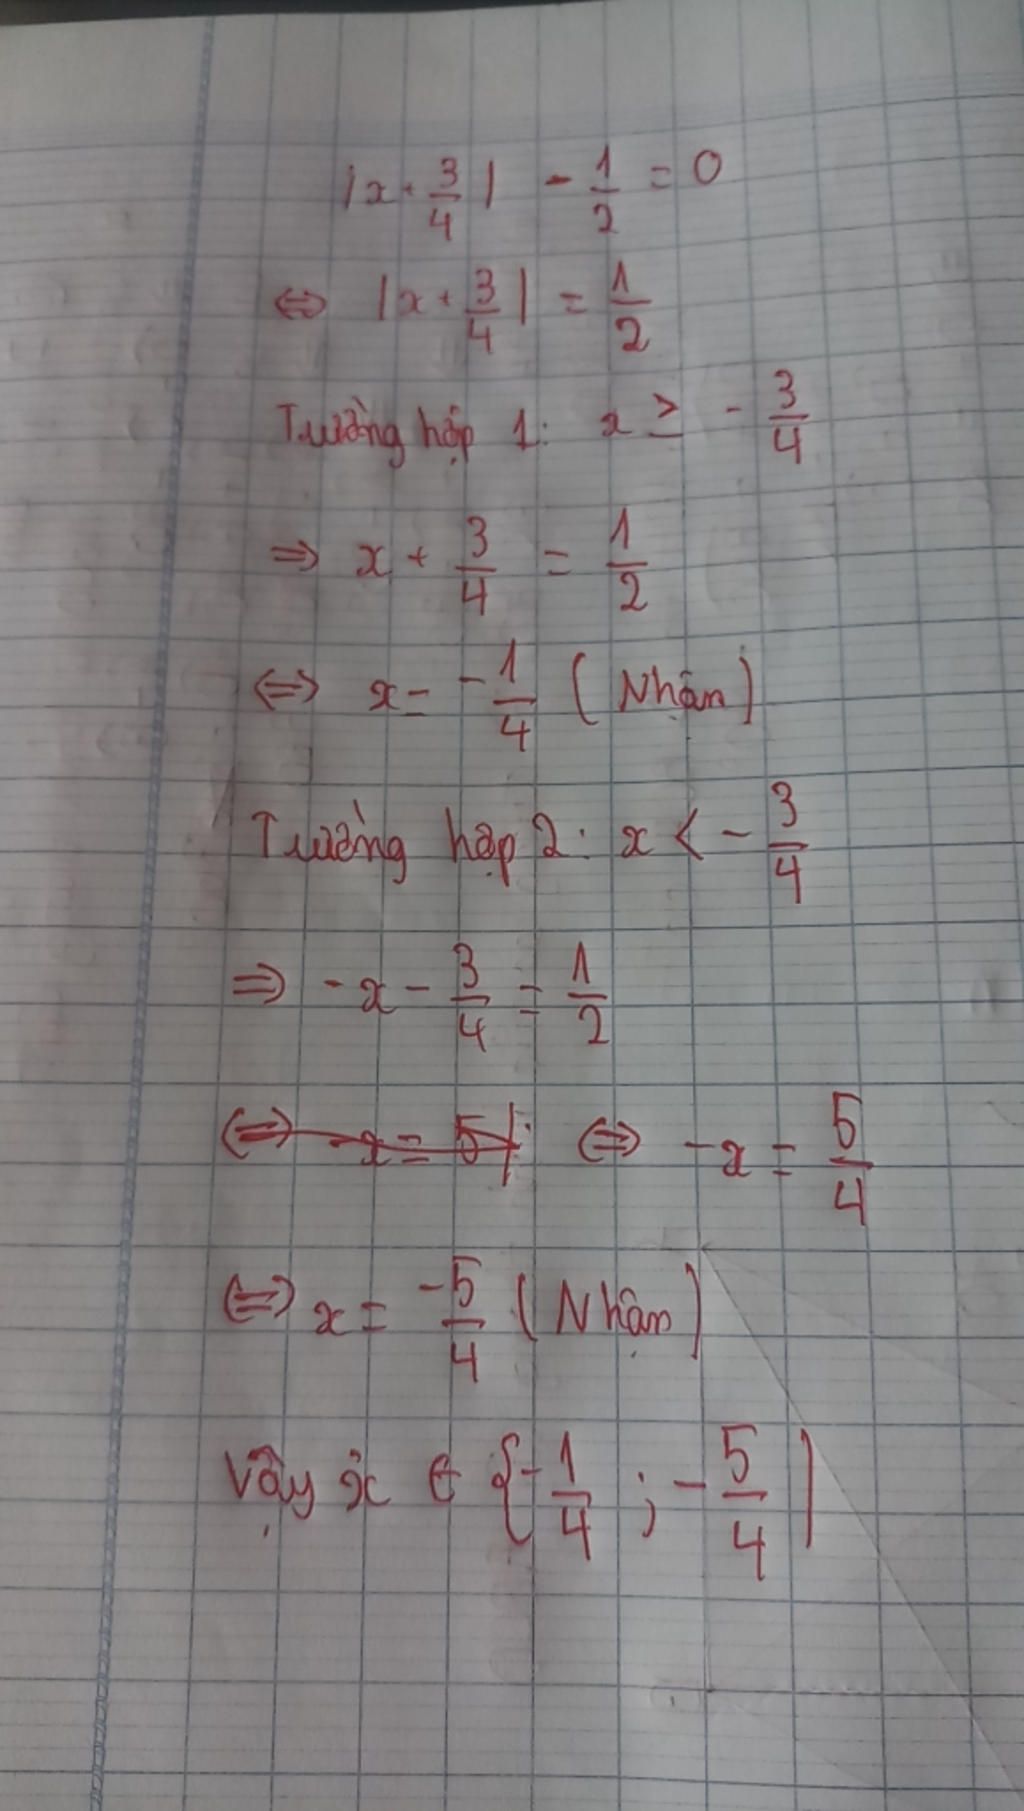 |x + 3/4| - 1/2 = 0
⇔ |x + 3/4| = 1/2
Trường hợp 1: x ≥ - 3/4
⇒ x + 3/4 = 1/2
⇔ x = - 1/4 (Nhận)
Trường hợp 2: x < - 3/4
⇒ -x - 3/4 = 1/2
⇔ -x = 5/ ⇔ -x = 5/4
⇔ x = -5/4 (Nhận)
Vậy x ∈ {- 1/4 ; - 5/4}